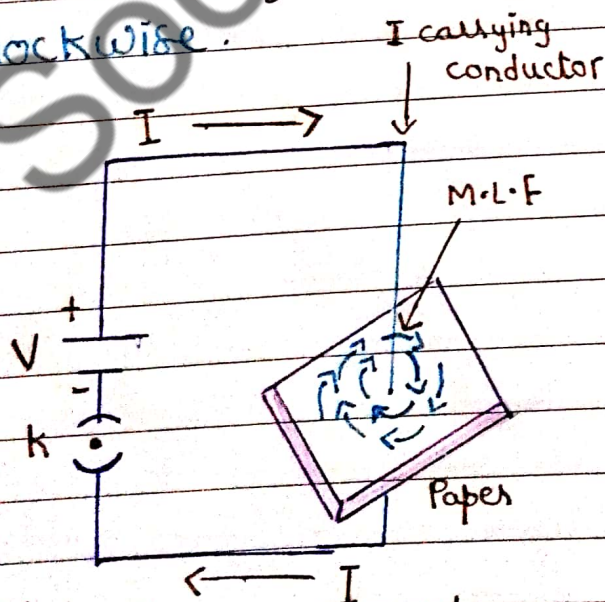 ockwise.
I carrying
conductor
I
M.L.F
+
V
-
K
Paper
I